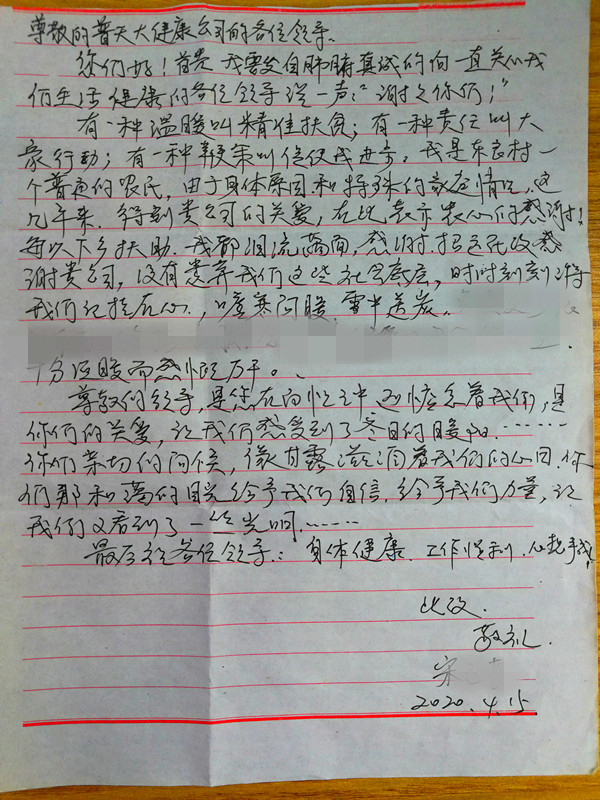 尊敬的普天大健康公司的各位领导.
您们好！首先我要发自肺腑真诚的向一直关心我
们生活健康的各位领导说一声："谢谢你们！"
有一种温暖叫精准扶贫；有一种责任叫大
家行动；有一种鞭策叫信任我进步。我是东村一
个普通的农民，由于身体原因和特殊的家庭情况，这
几年来.得到贵公司的关爱，在此表示衷心的感谢！
每次下乡扶助.我都泪流满面，感谢.政感
谢贵公司，没有丢弃我们这些社会底层，时时刻刻将
我们记挂在心.，嘘寒问暖雪中送炭。
十分温暖而感慨万千。
尊敬的领导，是您在百忙之中还惦念着我们，是
你们的关爱，让我们感受到了冬日的暖阳……
你们亲切的问候，像甘露滋润着我们的心田.你
们那和蔼的目光给予我们自信，给予我们力量，让
我们又看到了一丝光明……
最后祝各位领导：身体健康.工作顺利.心想事成！
此致.
敬礼.
宋
2020.4.15